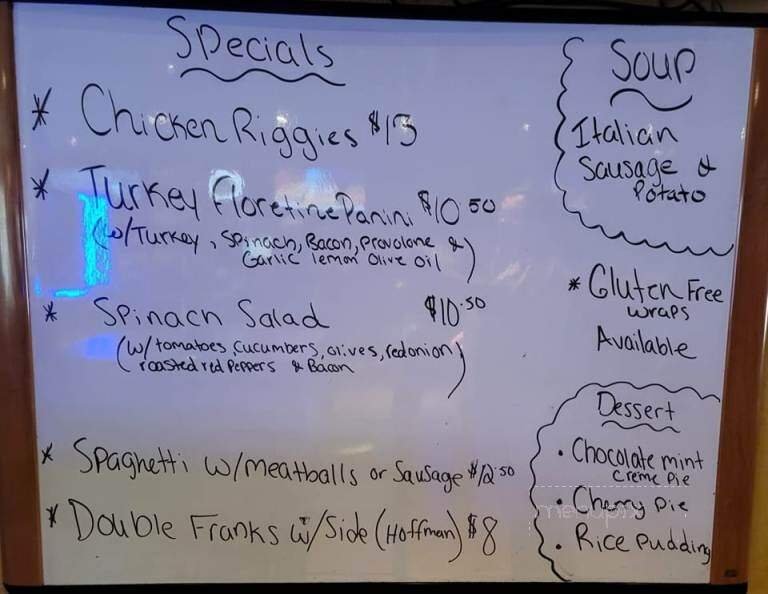 Specials
* Chicken Riggies $13
* Turkey Floretine Panini $10.50
(w/Turkey, Spinach, Bacon, Provolone &
Garlic lemon Olive oil)
* Spinach Salad $10.50
(w/tomatoes, cucumbers, olives, red onion,
roasted red Peppers & Bacon)
* Spaghetti w/meatballs or Sausage $12.50
* Double Franks w/Side (Hoffman) $8
Soup
Italian
Sausage &
Potato
* Gluten Free
wraps
Available
Dessert
• Chocolate mint
creme pie
• Cherry pie
• Rice pudding